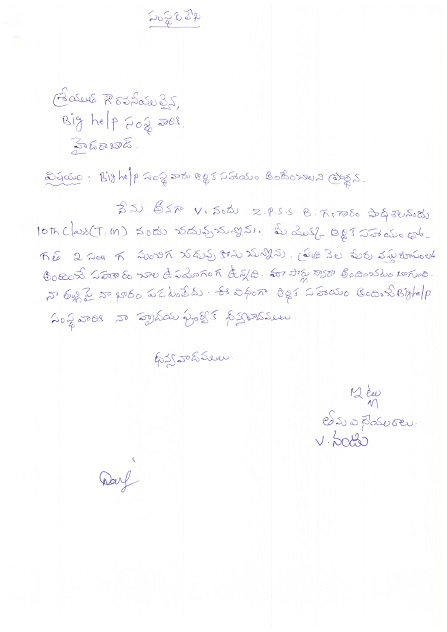 సంస్థకు లేఖ
శ్రీయుత గౌరవనీయులైన,
Big help సంస్థ వారికి
హైదరాబాద్.
విషయం : Big help సంస్థ వారు ఆర్థిక సహాయం అందించాలని ప్రార్థన.
నేను అనగా V. నందు Z.P.S.S B. గంగారం పాఠశాలనందు
10th Class (T.M) నందు చదువుచున్నాను. మీ యొక్క ఆర్థిక సహాయంతో
గత 2 సం॥ గా మంచిగ చదువు కొనుచున్నాను. ప్రతి నెల మీరు వస్తు రూపంలో
అందించే సహకారం చాల ఉపయోగంగ ఉన్నది. మా ద్వారా అందించటం బాగుంది.
నా తల్లి పై నా భారం పడటంలేదు. ఈ విధంగా ఆర్థిక సహాయం అందించే Big help
సంస్థ వారికి నా హృదయ పూర్వక ధన్యవాదములు.
ధన్యవాదములు.
ఇట్లు
తమ విధేయురాలు.
V. నందు